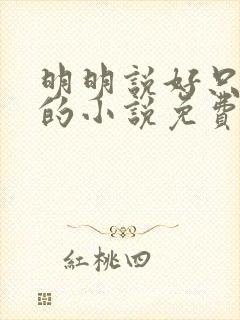 明明説好只
的小説免費
紅桃四